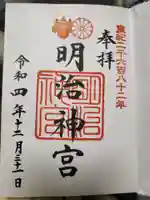 皇紀二千六百八十二年
奉拝
明治神宮
令和四年十二月三十一日